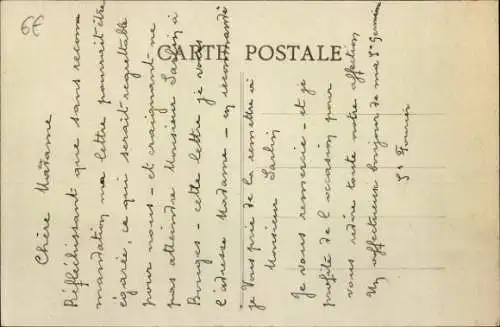 6€
CARTE POSTALE
Chère Madame
Réfléchissant que sans recom
mandation ma lettre pourrait être
égarée, ce qui serait regrettable
pour nous - et craignant ne
pas atteindre Monsieur Sarlin à
Bourgas - cette lettre je vous
l'adresse Madame - en recommandé
je vous prie de la remettre à
Monsieur Sarlin
Je vous remercie - et je
profite de l'occasion pour
vous redire toute notre affection
Un affectueux bonjour de ma St Germain